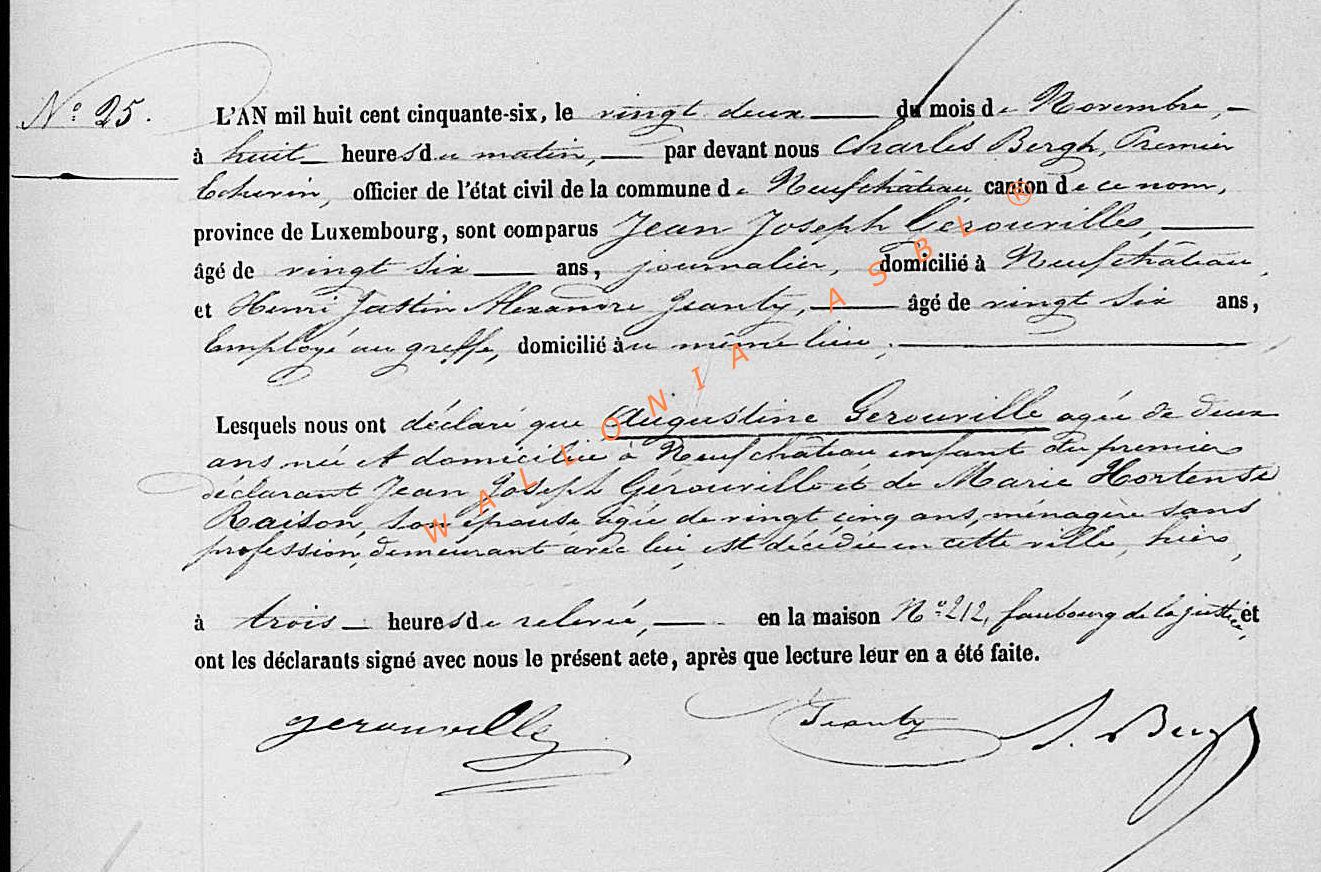 N° 25.
L'AN mil huit cent cinquante-six, le vingt deux du mois de Novembre,
à huit heures du matin, par devant nous Charles Bergh, Premier
Echevin, officier de l'état civil de la commune de Neufchâteau canton de ce nom,
province de Luxembourg, sont comparus Jean Joseph Gerouville,
âgé de vingt six ans, journalier, domicilié à Neufchâteau,
et Henri Justin Alexandre Jeanty, âgé de vingt six ans,
Employé au greffe, domicilié au même lieu,
Lesquels nous ont déclaré que Augustine Gerouville agée de deux
ans née et domiciliée à Neufchâteau enfant du premier
déclarant Jean Joseph Gerouville et de Marie Hortense
Raison, son épouse agée de vingt cinq ans, ménagère sans
profession, demeurant avec lui, est décédée en cette ville, hier,
à trois heures de relevée, en la maison N° 212, faubourg de la justice, et
ont les déclarants signé avec nous le présent acte, après que lecture leur en a été faite.
gerouville Jeanty
WALLONIA ASBL ®